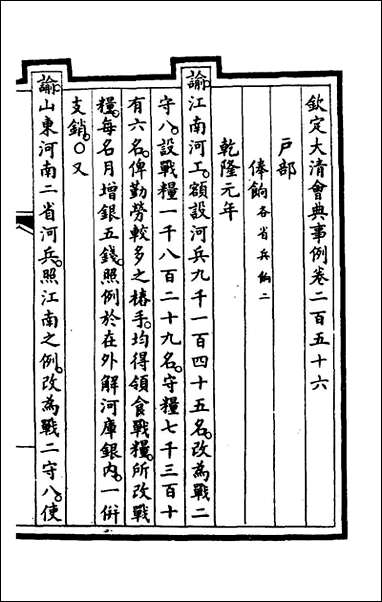 欽定大清會典事例卷二百五十六
戶部
俸餉各省兵餉二
乾隆元年
諭江南河工。額設河兵九千一百四十五名。改為戰二
守八。設戰糧一千八百二十九名。守糧七千三百十
有六名。俾勤勞較多之樁手。均得領食戰糧。所改戰
糧。每名月增銀五錢。照例於在外解河庫銀內。一併
支銷。○又
諭山東河南二省河兵。照江南之例。改為戰二守八。使